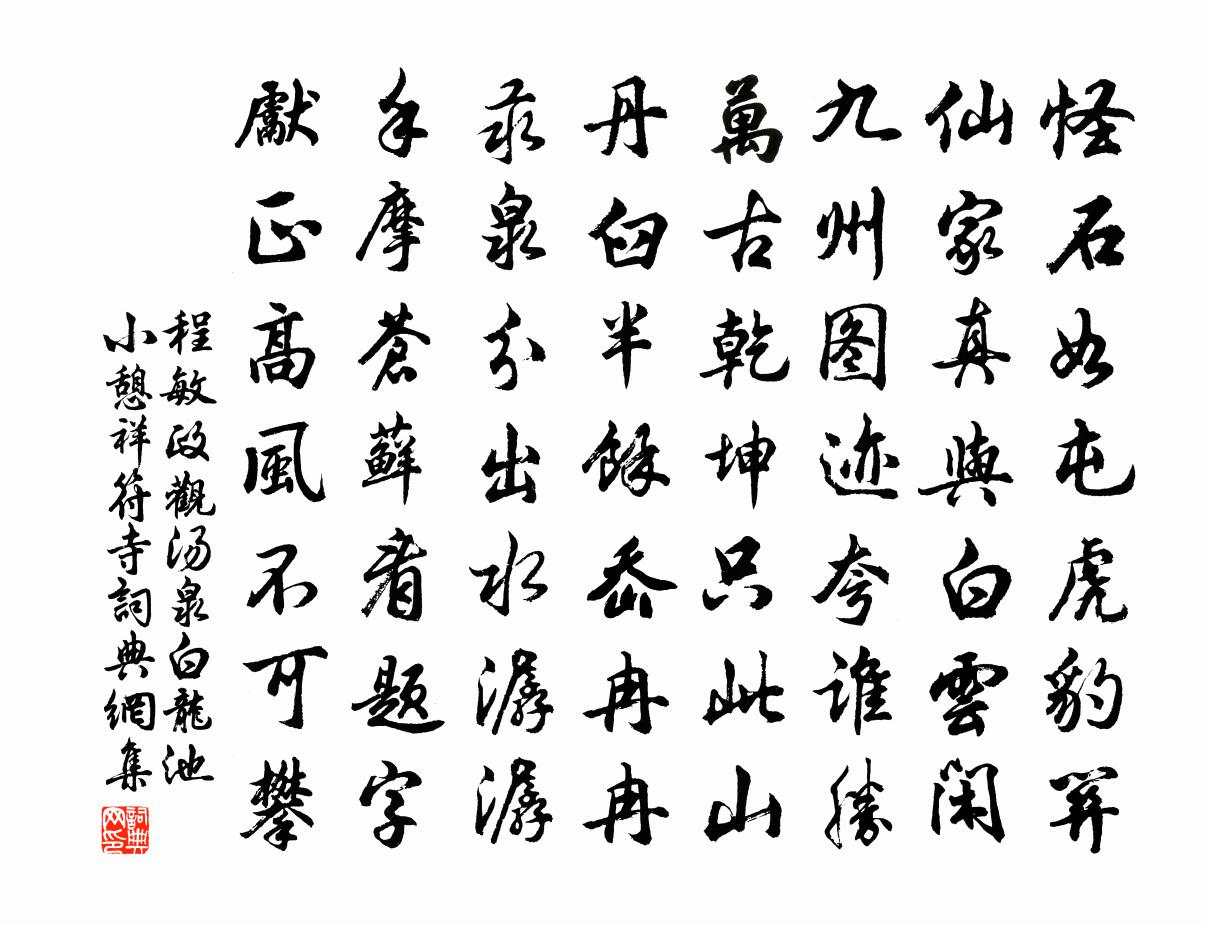 怪石如屯虎豹關
仙家真與白雲閑
九州图迹夸誰勝
萬古乾坤只此山
丹臼半餘冉冉
汞泉分出水潺潺
手摩蒼蘚看题字
獻正高風不可攀
程敏政觀湯泉白龍池
小憩祥符寺詞典網集
詞典网印